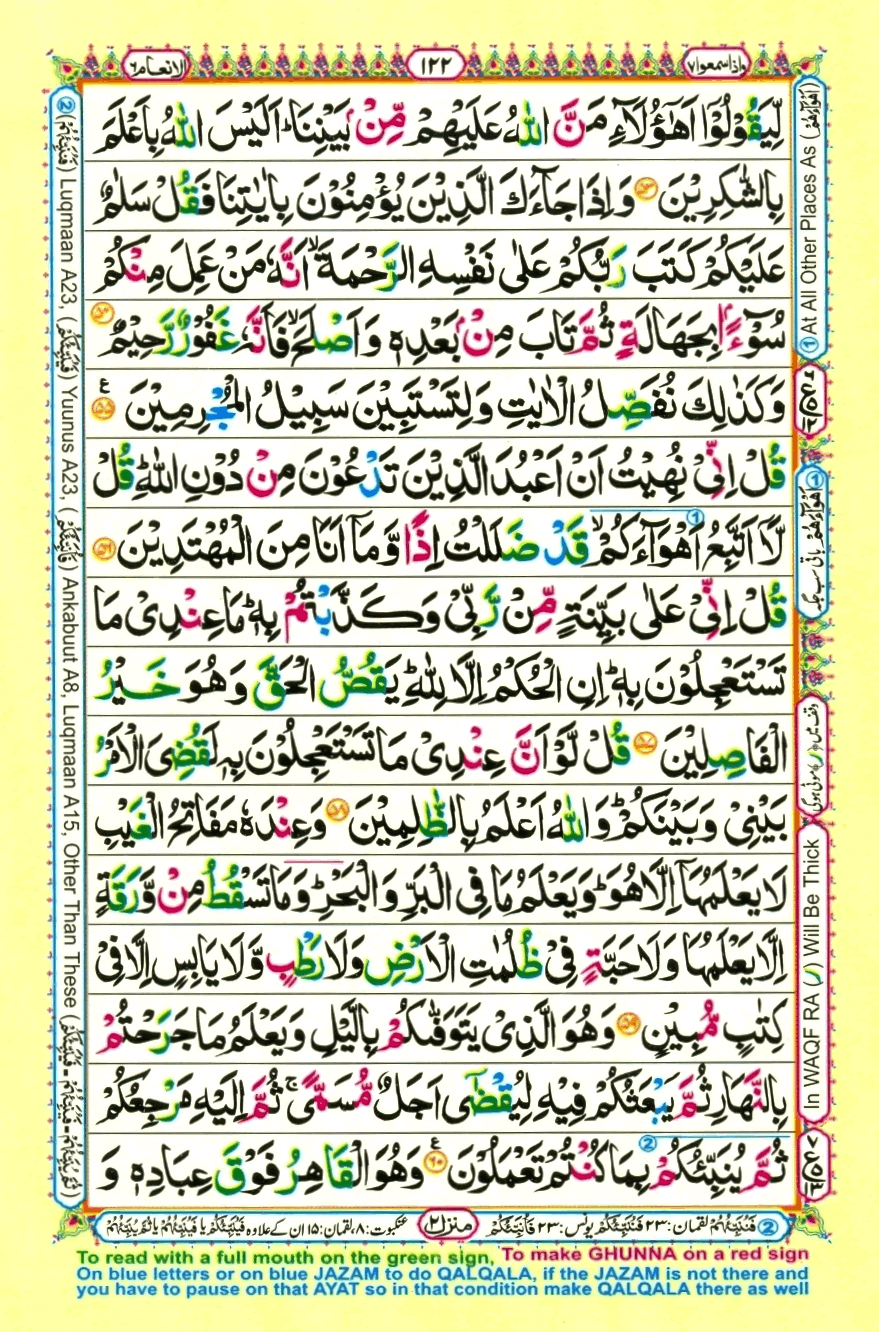 الانعام ٦
١٢٢
واذاسمعوا ٧
لِّيَقُوْلُوْۤا اَهٰۤؤُلَآءِ مَنَّ اللّٰهُ عَلَيْهِمْ مِّنْۢ بَيْنِنَا ؕ اَلَيْسَ اللّٰهُ بِاَعْلَمَ
بِالشّٰكِرِيْنَ ٥٣ وَاِذَا جَآءَكَ الَّذِيْنَ يُؤْمِنُوْنَ بِاٰيٰتِنَا فَقُلْ سَلٰمٌ
عَلَيْكُمْ كَتَبَ رَبُّكُمْ عَلٰى نَفْسِهِ الرَّحْمَةَ ۙ اَنَّهٗ مَنْ عَمِلَ مِنْكُمْ
سُوْٓءًۢا بِجَهَالَةٍ ثُمَّ تَابَ مِنْۢ بَعْدِهٖ وَاَصْلَحَ ۙ فَاَنَّهٗ غَفُوْرٌ رَّحِيْمٌ ٥٤
وَكَذٰلِكَ نُفَصِّلُ الْاٰيٰتِ وَلِتَسْتَبِيْنَ سَبِيْلُ الْمُجْرِمِيْنَ ٥٥ ع
قُلْ اِنِّيْ نُهِيْتُ اَنْ اَعْبُدَ الَّذِيْنَ تَدْعُوْنَ مِنْ دُوْنِ اللّٰهِ ؕ قُلْ
لَّاۤ اَتَّبِعُ اَهْوَآءَكُمْ ۙ قَدْ ضَلَلْتُ اِذًا وَّمَاۤ اَنَا مِنَ الْمُهْتَدِيْنَ ٥٦
قُلْ اِنِّيْ عَلٰى بَيِّنَةٍ مِّنْ رَّبِّيْ وَكَذَّبْتُمْ بِهٖ ؕ مَا عِنْدِيْ مَا
تَسْتَعْجِلُوْنَ بِهٖ ؕ اِنِ الْحُكْمُ اِلَّا لِلّٰهِ ؕ يَقُصُّ الْحَقَّ وَهُوَ خَيْرُ
الْفَاصِلِيْنَ ٥٧ قُلْ لَّوْ اَنَّ عِنْدِيْ مَا تَسْتَعْجِلُوْنَ بِهٖ لَقُضِيَ الْاَمْرُ
بَيْنِيْ وَبَيْنَكُمْ ؕ وَاللّٰهُ اَعْلَمُ بِالظّٰلِمِيْنَ ٥٨ وَعِنْدَهٗ مَفَاتِحُ الْغَيْبِ
لَا يَعْلَمُهَاۤ اِلَّا هُوَ ؕ وَيَعْلَمُ مَا فِي الْبَرِّ وَالْبَحْرِ ؕ وَمَا تَسْقُطُ مِنْ وَّرَقَةٍ
اِلَّا يَعْلَمُهَا وَلَا حَبَّةٍ فِيْ ظُلُمٰتِ الْاَرْضِ وَلَا رَطْبٍ وَّلَا يَابِسٍ اِلَّا فِيْ
كِتٰبٍ مُّبِيْنٍ ٥٩ وَهُوَ الَّذِيْ يَتَوَفّٰىكُمْ بِالَّيْلِ وَيَعْلَمُ مَا جَرَحْتُمْ
بِالنَّهَارِ ثُمَّ يَبْعَثُكُمْ فِيْهِ لِيُقْضٰۤى اَجَلٌ مُّسَمًّى ۚ ثُمَّ اِلَيْهِ مَرْجِعُكُمْ
ثُمَّ يُنَبِّئُكُمْ بِمَا كُنْتُمْ تَعْمَلُوْنَ ٦٠ ع وَهُوَ الْقَاهِرُ فَوْقَ عِبَادِهٖ وَ
① At All Other Places As (اَهْوَآءَهُمْ)
① اَهْوَآءَهُمْ باقی سب جگہ
وقف میں (ر) موٹی ہوگی
In WAQF RA (ر) Will Be Thick
② (فَنُنَبِّئُهُمْ) Luqmaan A23, (فَنُنَبِّئُكُمْ) Yuunus A23, (فَاُنَبِّئُكُمْ) Ankabuut A8, Luqmaan A15, Other Than These
② فَنُنَبِّئُهُمْ لقمان: ٢٣ فَنُنَبِّئُكُمْ یونس: ٢٣ فَاُنَبِّئُكُمْ
منزل ٢
عنکبوت: ٨، لقمان: ١٥ ان کے علاوہ
To read with a full mouth on the green sign, To make GHUNNA on a red sign
On blue letters or on blue JAZAM to do QALQALA, if the JAZAM is not there and
you have to pause on that AYAT so in that condition make QALQALA there as well